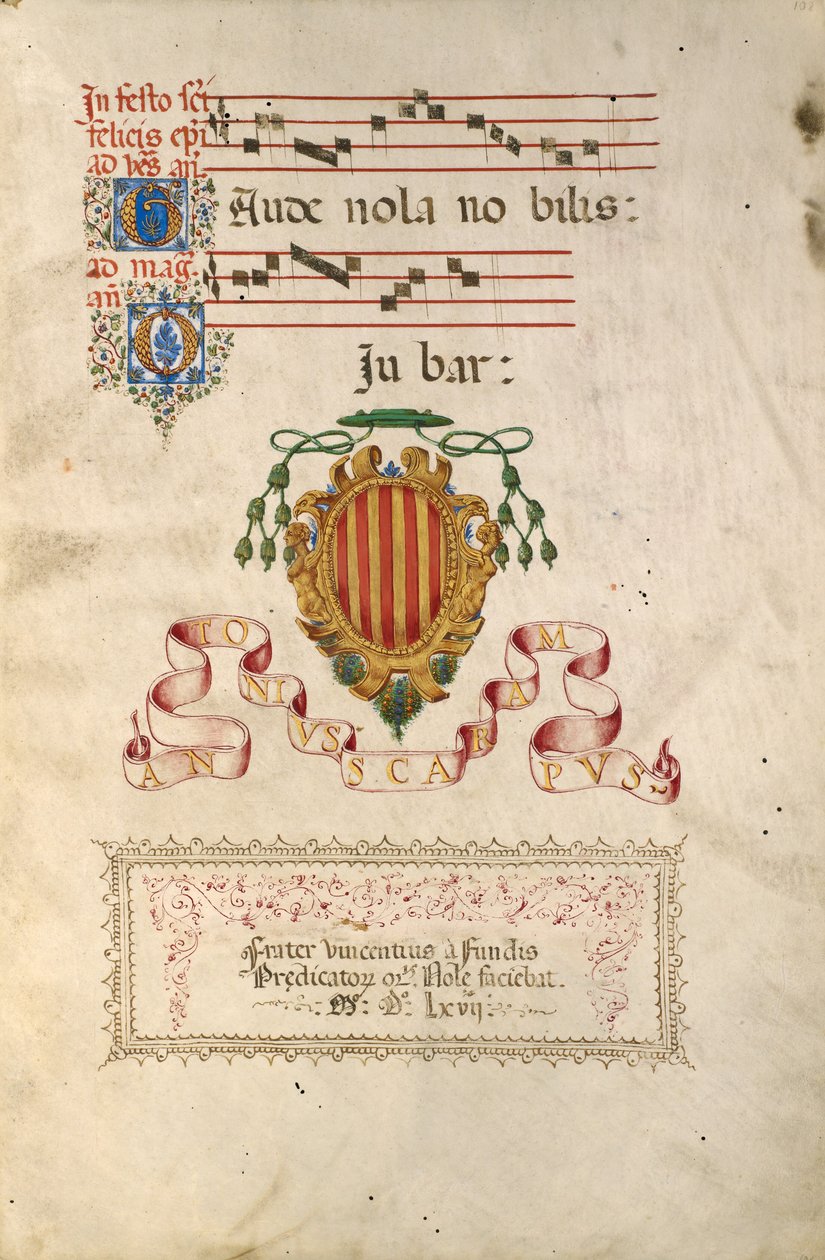 102
In festo sc̄i
felicis ep̄i
ad ves̄ an̄.
GAude nola no bilis:
ad maḡ.
an̄
O
Ju bar:
ANTONIVS SCARAMPVS~
Frater Vincentius à Fundis
Prędicatoꝝ oris. Nole faciebat.
M̊: D̊: Lxvij: